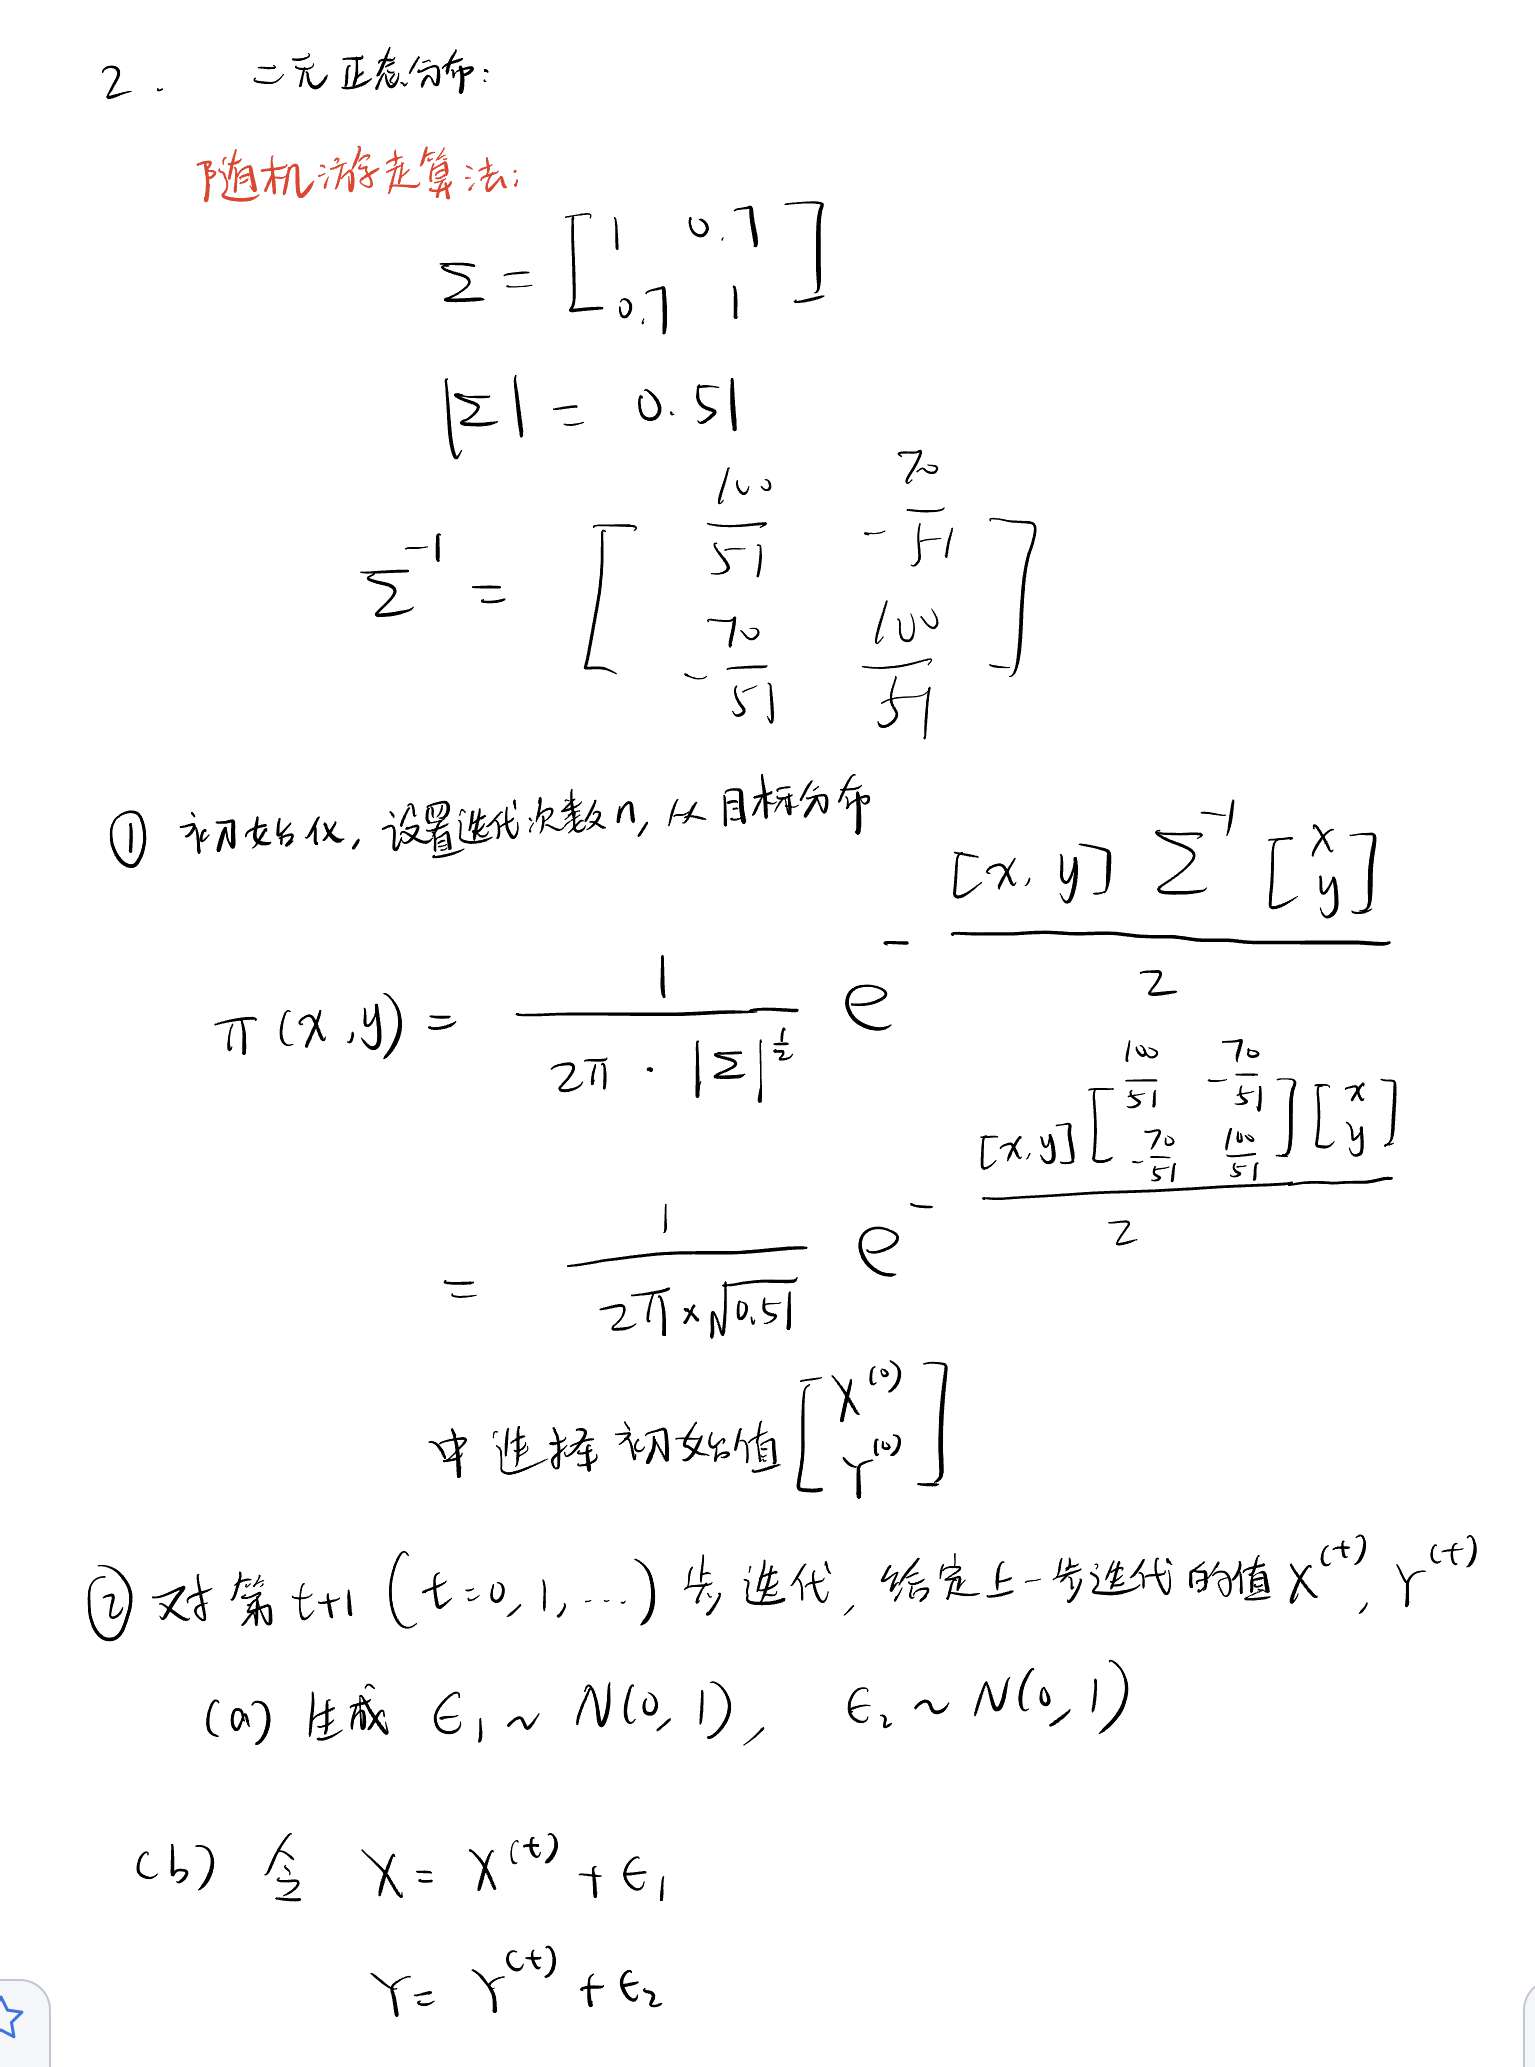 2. 二元正态分布:
随机游走算法:
Σ = [1 0.7
0.7 1]
|Σ| = 0.51
Σ⁻¹ = [100/51 -70/51
-70/51 100/51]
① 初始化, 设置迭代次数n, 从目标分布
π(x,y) = 1/(2π·|Σ|^(1/2)) e^(-([x,y] Σ⁻¹ [x y])/2)
= 1/(2π×√0.51) e^(-([x,y][100/51 -70/51 -70/51 100/51][x y])/2)
中选择初始值 [X^(0) Y^(0)]
② 对第t+1 (t=0,1,...) 步迭代, 给定上一步迭代的值 X^(t), Y^(t)
(a) 生成 ϵ₁ ~ N(0,1), ϵ₂ ~ N(0,1)
(b) 令 X = X^(t) + ϵ₁
Y = Y^(t) + ϵ₂